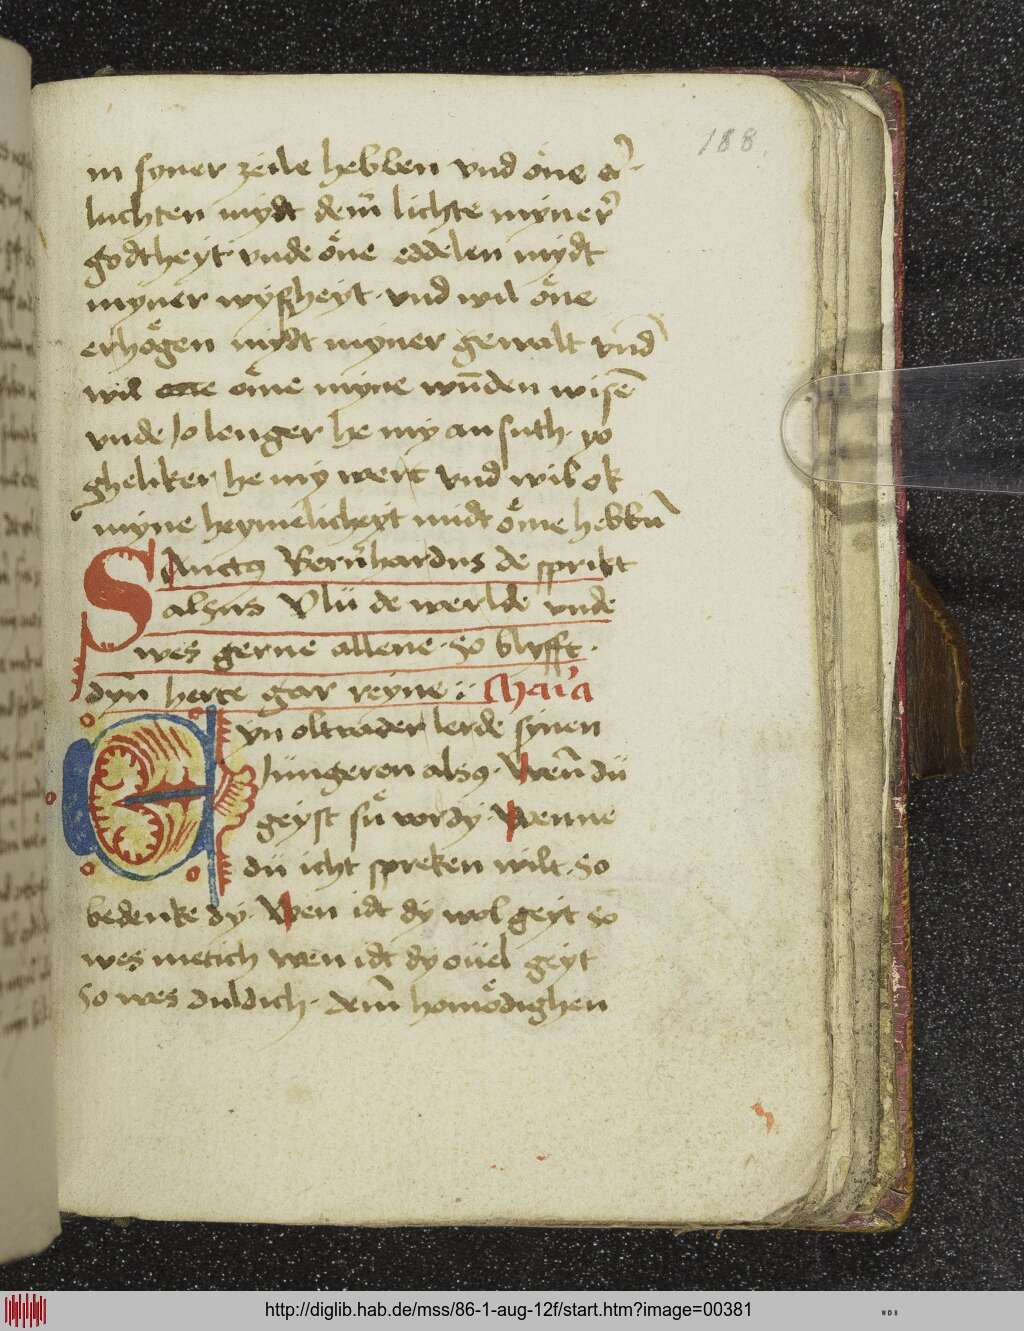 188
in syner zeile hebben vnd öne er
luchten mydt dem̄ lichte myner
godtheyt vnde öne eddelen mydt
myner wyſheyt · vnd wil öne
erhögen mydt myner gewalt vnd̄
wil öme myne wn̄den wisē
vnde Jo lenger he my an suth · yo
gheliker he my wert vnd wil ok
myne heymelicheyt midt öme hebbn̄
SAnctus Bern̄hardus de sprikt
alsus Vlü de werlde vnde
wes gerne allene · So blyfft ·
dyn̄ herte gar reyne :
EYn oltvader lerde synen
Jüngeren alsus · Wen̄ dü
geyst sü vor dy · Wenne
dü icht spreken wilt · So
bedenke dy · Wen idt dy wol geyt so
wes metich wen idt dy öüel geyt
So wes duldich · dem̄ homödighen
http://diglib.hab.de/mss/86-1-aug-12f/start.htm?image=00381